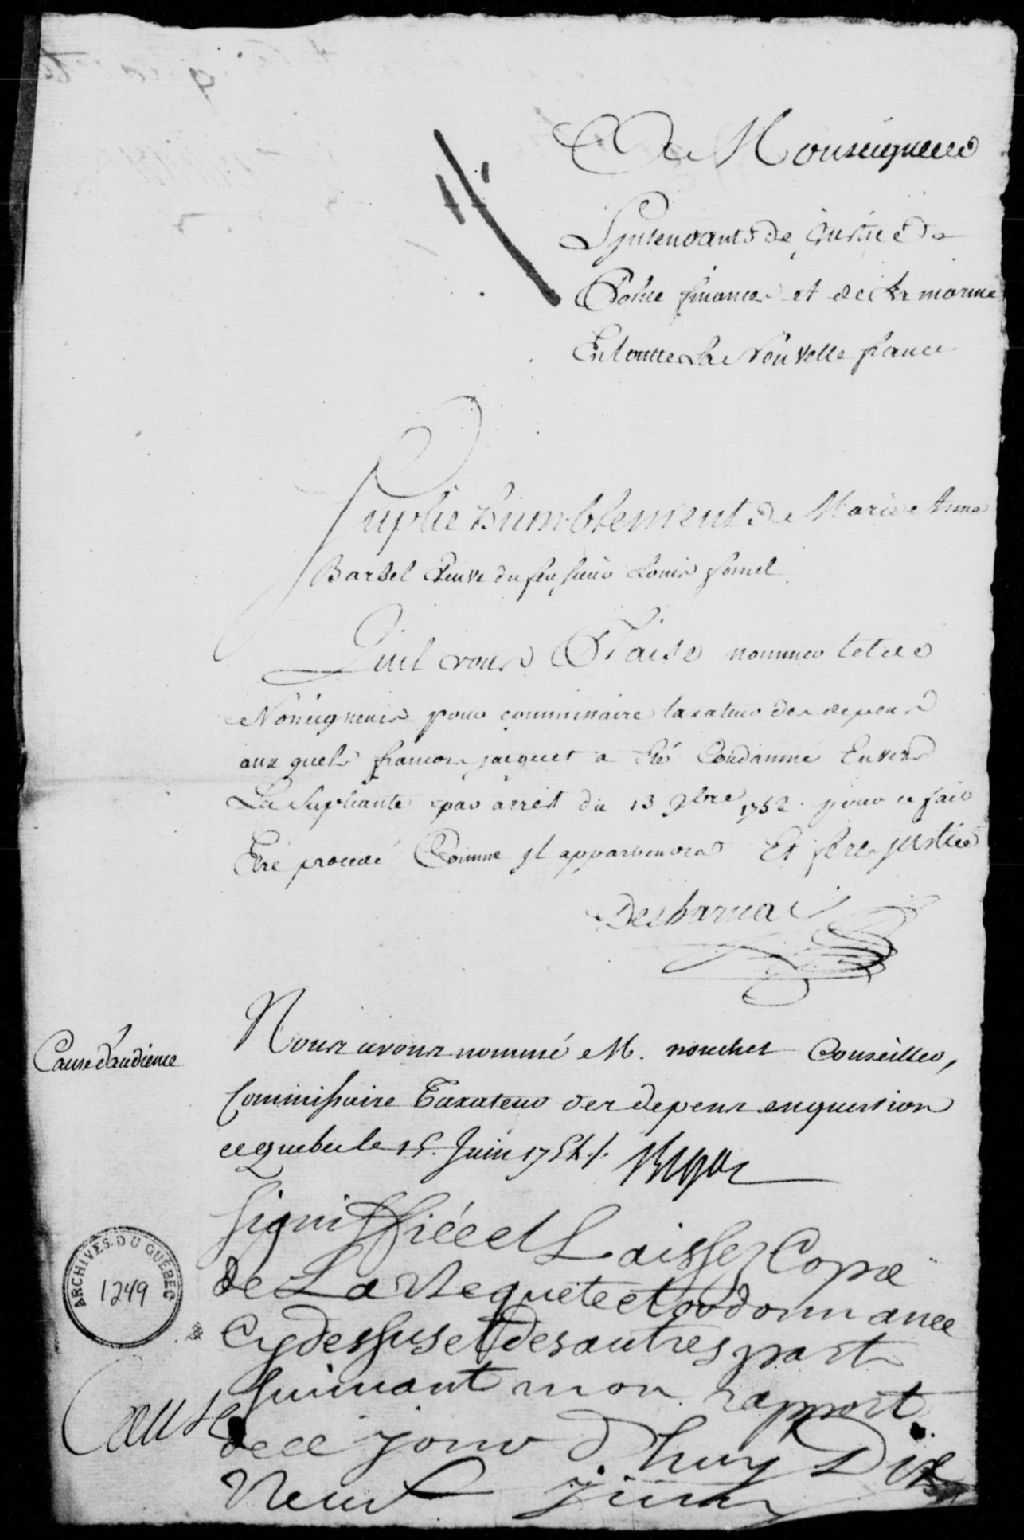 A Monseigneur
Lyntendant de justice de
Police finance et de la marine
En toutte La Nouvelle france
Suplie humblement Marie Anne
Barbel Veuve du feu sieur Louis fornel
Quil vous Plaise nommer tel de
Nosseigneurs pour commissaire taxateur des depens
aux quels francois jacquet a Eté Condamné Envers
La Supliante par arrest du 13 9bre 1752. pour ce fait
Etre procedé Comme jl appartiendra Et fere justice
Desharnai
Cause d'audience
Nous avons nommé M. nouchet Conseiller,
Commissaire Taxateur des depens en question
a quebec le 15. Juin 1754./. Bigot
Signiffiée et Laissez Copie
de La Requete et ordonnance
Cy dessus et des autres part
suivant mon rapport
de ce jour d'huy Dix
Neuf juin
Cause
ARCHIVES DU QUÉBEC
1249